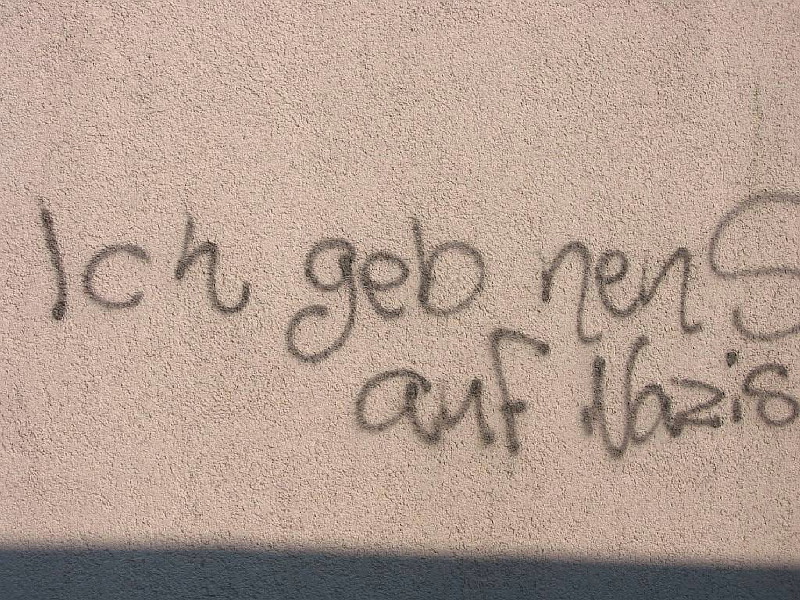 Ich geb nen S
auf Nazis